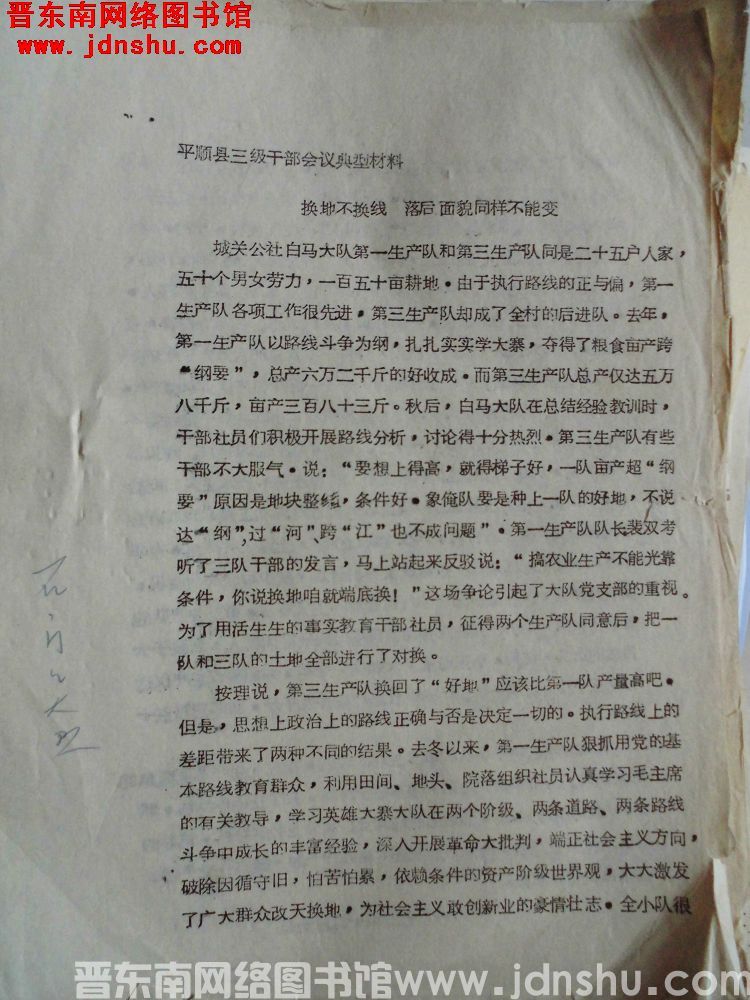 晋东南网络图书馆
www.jdnshu.com
平顺县三级干部会议典型材料
换地不换线　落后面貌同样不能变
城关公社白马大队第一生产队和第三生产队同是二十五户人家，
五十个男女劳力，一百五十亩耕地。由于执行路线的正与偏，第一
生产队各项工作很先进，第三生产队却成了全村的后进队。去年，
第一生产队以路线斗争为纲，扎扎实实学大寨，夺得了粮食亩产跨
“纲要”，总产六万二千斤的好收成。而第三生产队总产仅达五万
八千斤，亩产三百八十三斤。秋后，白马大队在总结经验教训时，
干部社员们积极开展路线分析，讨论得十分热烈。第三生产队有些
干部不大服气。说：“要想上得高，就得梯子好，一队亩产超“纲
要”原因是地块整，条件好。象俺队要是种上一队的好地，不说
达“纲”，过“河”、跨“江”也不成问题”。第一生产队队长裴双考
听了三队干部的发言，马上站起来反驳说：“搞农业生产不能光靠
条件，你说换地咱就端底换！”这场争论引起了大队党支部的重视。
为了用活生生的事实教育干部社员，征得两个生产队同意后，把一
队和三队的土地全部进行了对换。
按理说，第三生产队换回了“好地”应该比第一队产量高吧。
但是，思想上政治上的路线正确与否是决定一切的。执行路线上的
差距带来了两种不同的结果。去冬以来，第一生产队狠抓用党的基
本路线教育群众，利用田间、地头、院落组织社员认真学习毛主席
的有关教导，学习英雄大寨大队在两个阶级、两条道路、两条路线
斗争中成长的丰富经验，深入开展革命大批判，端正社会主义方向，
破除因循守旧，怕苦怕累，依赖条件的资产阶级世界观，大大激发
了广大群众改天换地，为社会主义敢创新业的豪情壮志。全小队很
晋东南网络图书馆www.jdnshu.com